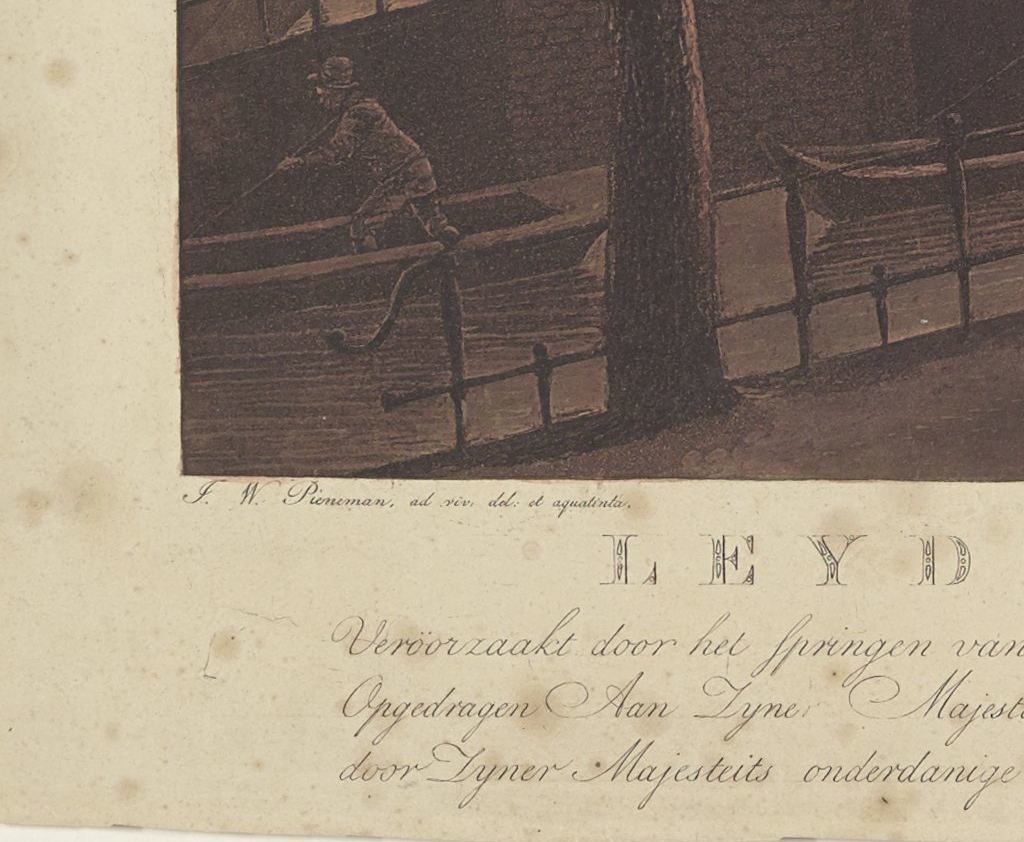 J. W. Pieneman, ad viv. del: et aquatinta.
LEYD
Veröorzaakt door het springen van
Opgedragen Aan Zyner Majest
door Zyner Majesteits onderdanige